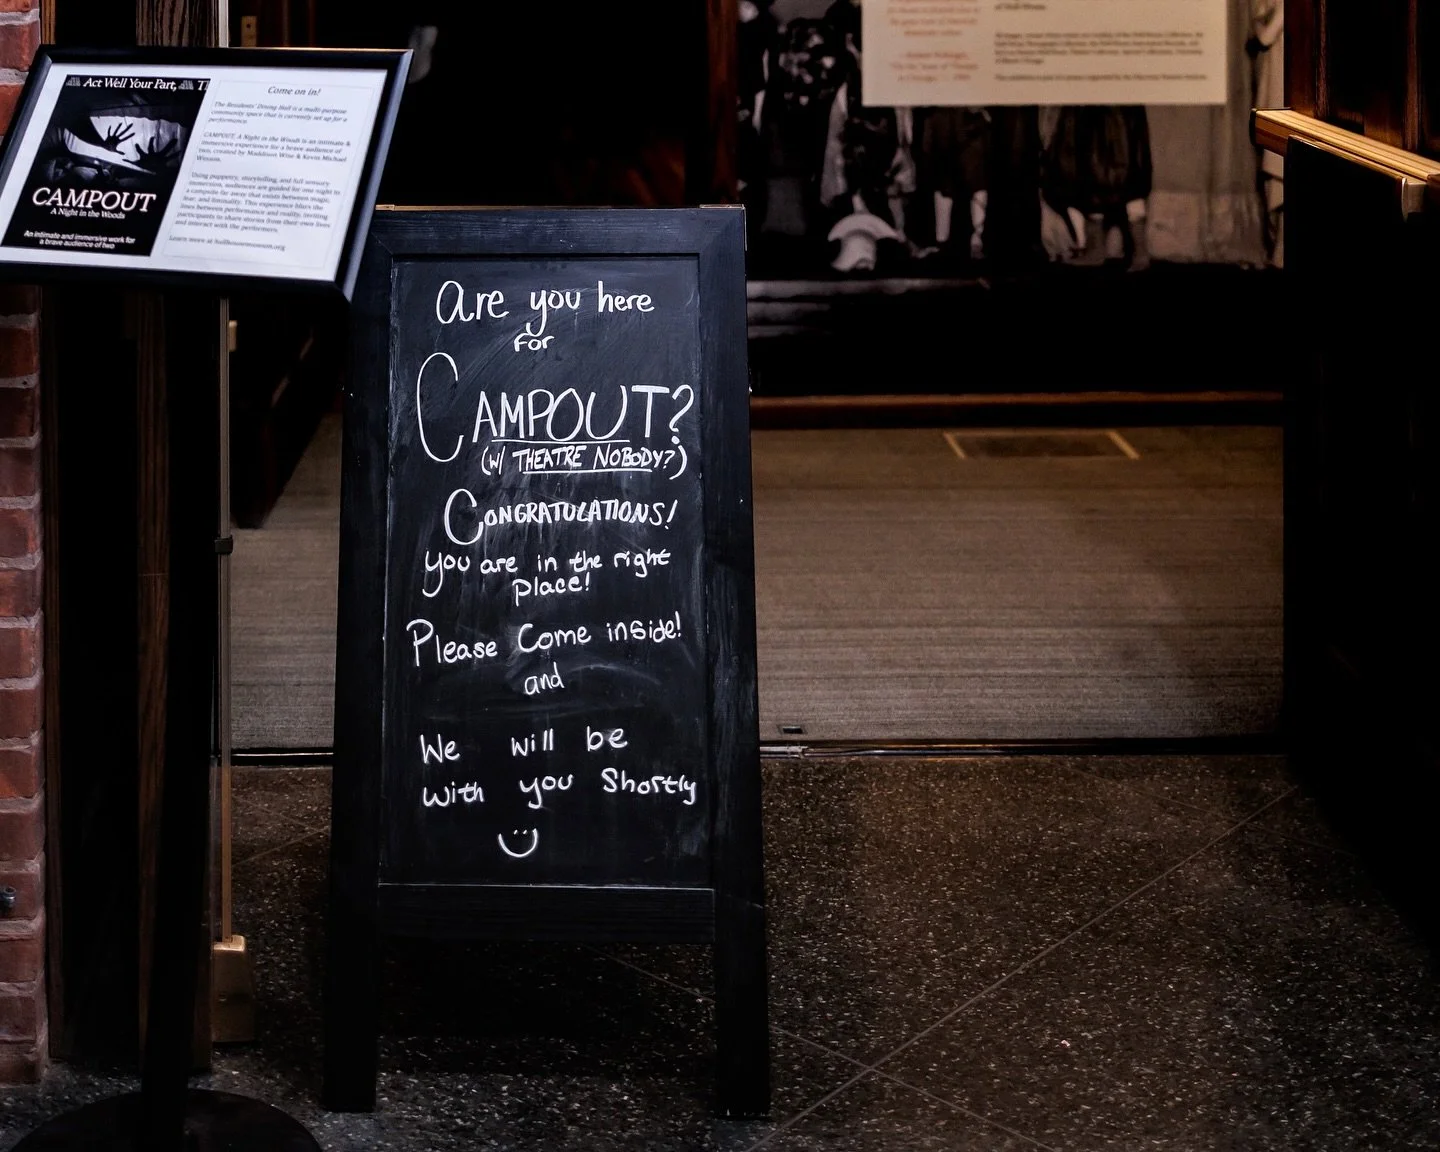 Act Well Your Part,
CAMPOUT
A Night in the Woods
An intimate and immersive work for
a brave audience of two
Come on in!
The Residents' Dining Hall is a multi-purpose
community space that is currently set up for a
performance.
CAMPOUT: A Night in the Woods is an intimate &
immersive experience for a brave audience of
two, created by Maddison Wise & Kevin Michael
Wesson.
Using puppetry, storytelling, and full sensory
immersion, audiences are guided for one night to
a campsite far away that exists between magic,
fear, and liminality. This experience blurs the
lines between performance and reality, inviting
participants to share stories from their own lives
and interact with the performers.
Learn more at hullhousemuseum.org
are you here
for
CAMPOUT?
(w/ THEATRE NOBODY?)
CONGRATULATIONS!
you are in the right
place!
Please Come inside!
and
We will be
with you Shortly